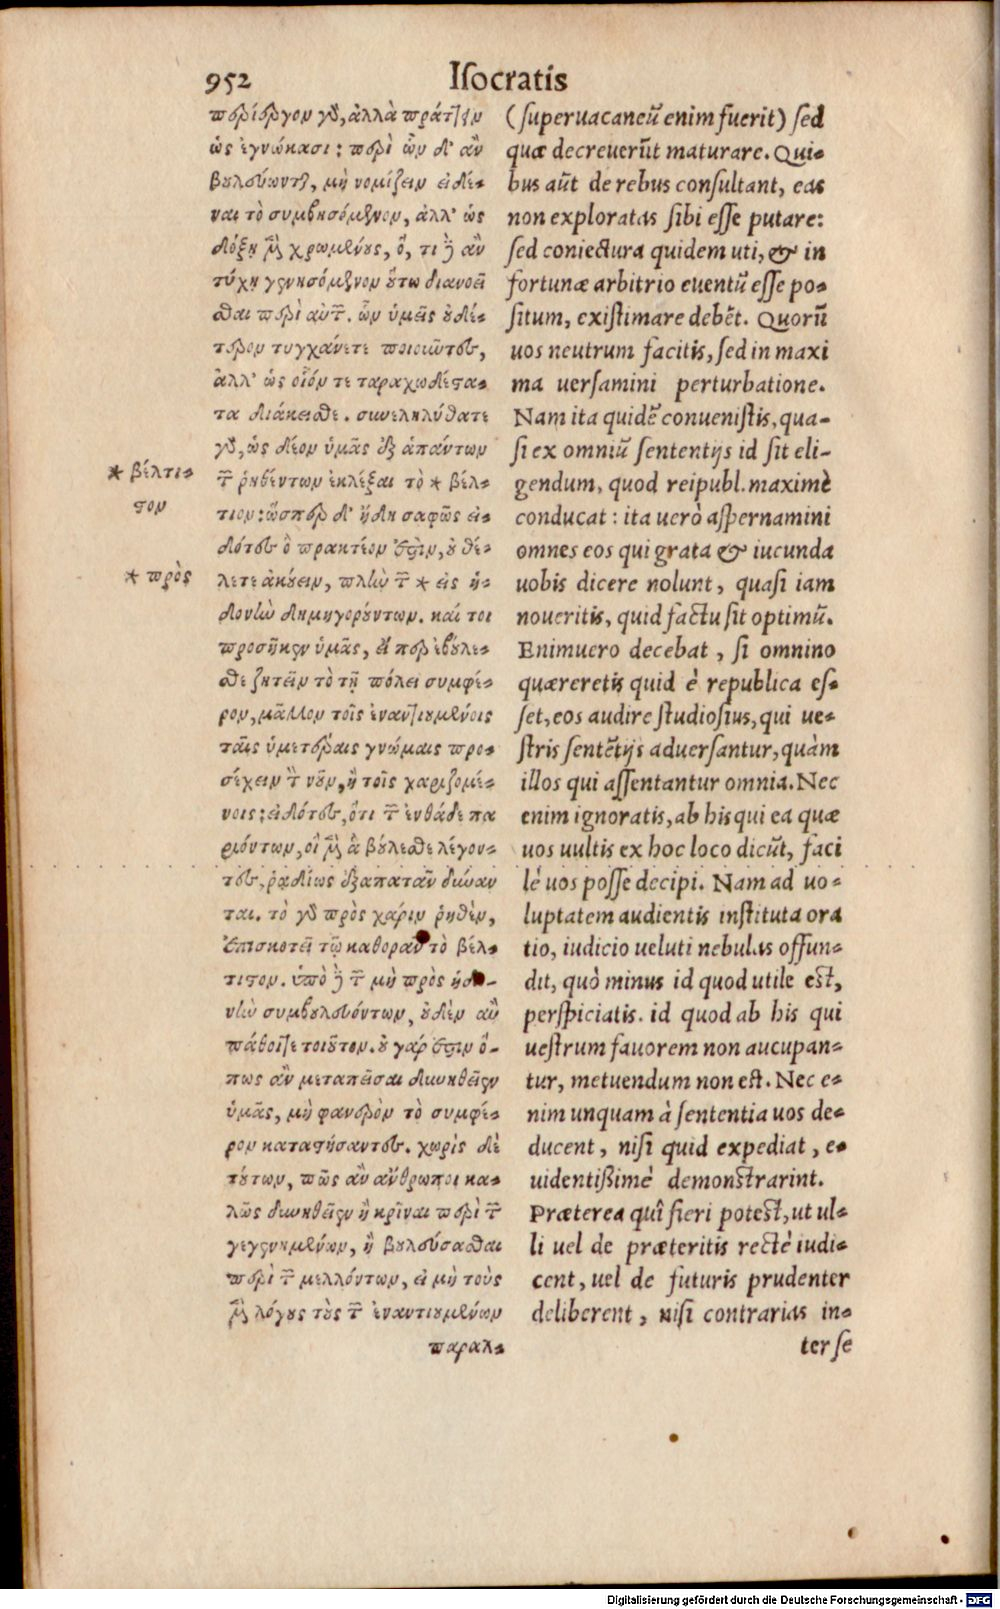 952 Isocratis
περίεργον γὰρ, ἀλλὰ πράττειν
ὡς ἐγνώκασι: περὶ ὧν δ' ἂν
βουλεύωνται, μὴ νομίζειν εἰδέ-
ναι τὸ συμβησόμενον, ἀλλ' ὡς
δόξῃ μὲν χρωμένους, ὅ, τι δὲ ἂν
τύχῃ γενησόμενον οὕτω διανοεῖ
σθαι περὶ αὐτῶν. ὧν ὑμεῖς οὐδέ-
τερον τυγχάνετε ποιοῦντες,
ἀλλ' ὡς οἷόν τε ταραχωδέστα-
τα διάκεισθε. συνεληλύθατε
γὰρ, ὡς δέον ὑμᾶς ἐξ ἁπάντων
* βέλτι-
στον
τῶν ῥηθέντων ἐκλέξαι τὸ * βέλ-
τιον: ὥσπερ δ' ἤδη σαφῶς εἰ-
δότες ὃ πρακτέον ἐστὶν, οὐ θέ-
* πρὸς
λετε ἀκούειν, πλὴν τῶν * εἰς ἡ-
δονὴν δημηγορούντων. καί τοι
προσῆκεν ὑμᾶς, εἴ περ ἐβούλε-
σθε ζητεῖν τὸ τῇ πόλει συμφέ-
ρον, μᾶλλον τοῖς ἐναντιουμένοις
ταῖς ὑμετέραις γνώμαις προ-
σέχειν τὸν νοῦν, ἢ τοῖς χαριζομέ-
νοις: εἰδότας, ὅτι τῶν ἐνθάδε πα
ριόντων, οἱ μὲν ἃ βούλεσθε λέγον-
τες, ῥᾳδίως ἐξαπατᾶν δύναν
ται. τὸ γὰρ πρὸς χάριν ῥηθὲν,
ἐπισκοτεῖ τῷ καθορᾶν τὸ βέλ-
τιστον. ὑπὸ δὲ τῶν μὴ πρὸς ἡδο-
νὴν συμβουλευόντων, οὐδὲν ἂν
πάθοιτε τοιοῦτον. οὐ γάρ ἐστιν ὅ-
πως ἂν μεταπεῖσαι δυνηθεῖεν
ὑμᾶς, μὴ φανερὸν τὸ συμφέ-
ρον καταστήσαντες. χωρὶς δὲ
τούτων, πῶς ἂν ἄνθρωποι κα-
λῶς δυνηθεῖεν ἢ κρῖναι περὶ τῶν
γεγενημένων, ἢ βουλεύσασθαι
περὶ τῶν μελλόντων, εἰ μὴ τοὺς
μὲν λόγους τοὺς τῶν ἐναντιουμένων
παραλ-
(superuacaneũ enim fuerit) sed
quæ decreuerũt maturare. Qui-
bus aũt de rebus consultant, eas
non exploratas sibi esse putare:
sed coniectura quidem uti, & in
fortunæ arbitrio euentũ esse po-
situm, existimare debẽt. Quorũ
uos neutrum facitis, sed in maxi
ma uersamini perturbatione.
Nam ita quidẽ conuenistis, qua-
si ex omniũ sententijs id sit eli-
gendum, quod reipubl. maximè
conducat: ita uerò aspernamini
omnes eos qui grata & iucunda
uobis dicere nolunt, quasi iam
noueritis, quid factu sit optimũ.
Enimuero decebat, si omnino
quæreretis quid è republica es-
set, eos audire studiosius, qui ue-
stris sentẽtijs aduersantur, quàm
illos qui assentantur omnia. Nec
enim ignoratis, ab his qui ea quæ
uos uultis ex hoc loco dicũt, faci
lè uos posse decipi. Nam ad uo-
luptatem audientis instituta ora
tio, iudicio ueluti nebulas offun-
dit, quò minus id quod utile est,
perspiciatis. id quod ab his qui
uestrum fauorem non aucupan-
tur, metuendum non est. Nec e-
nim unquam à sententia uos de-
ducent, nisi quid expediat, e-
uidentißimè demonstrarint.
Præterea quî fieri potest, ut ul-
li uel de præteritis rectè iudi-
cent, uel de futuris prudenter
deliberent, nisi contrarias in-
ter se
Digitalisierung gefördert durch die Deutsche Forschungsgemeinschaft - DFG